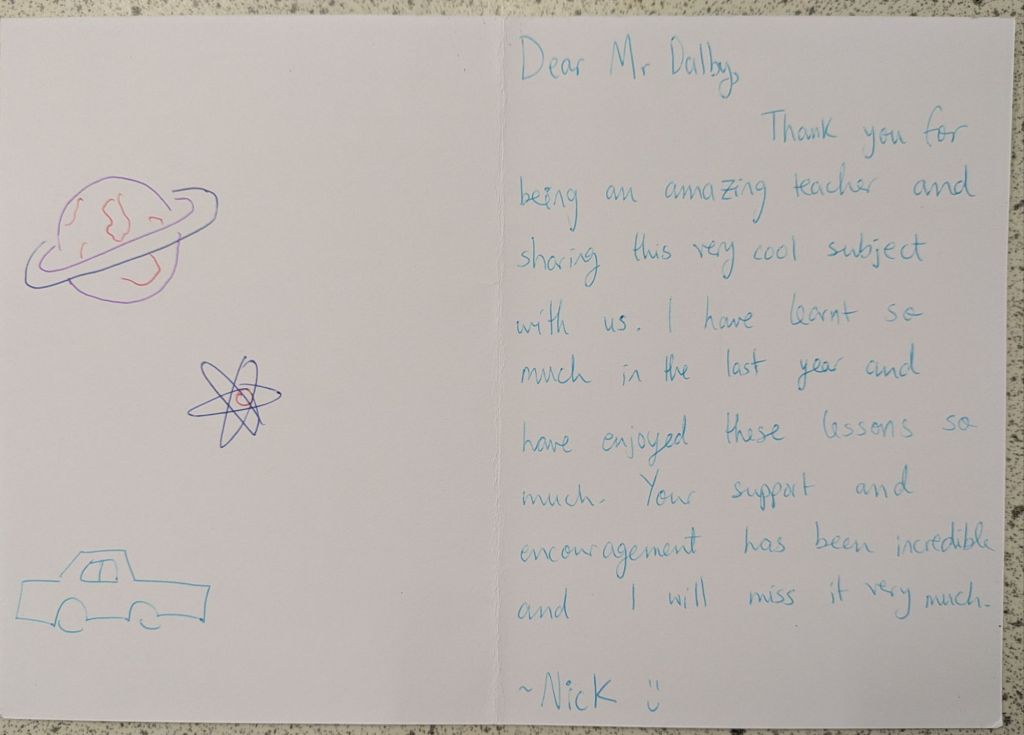 Dear Mr Dalby,
Thank you for
being an amazing teacher and
sharing this very cool subject
with us. I have learnt so
much in the last year and
have enjoyed these lessons so
much. Your support and
encouragement has been incredible
and I will miss it very much.
~Nick :)